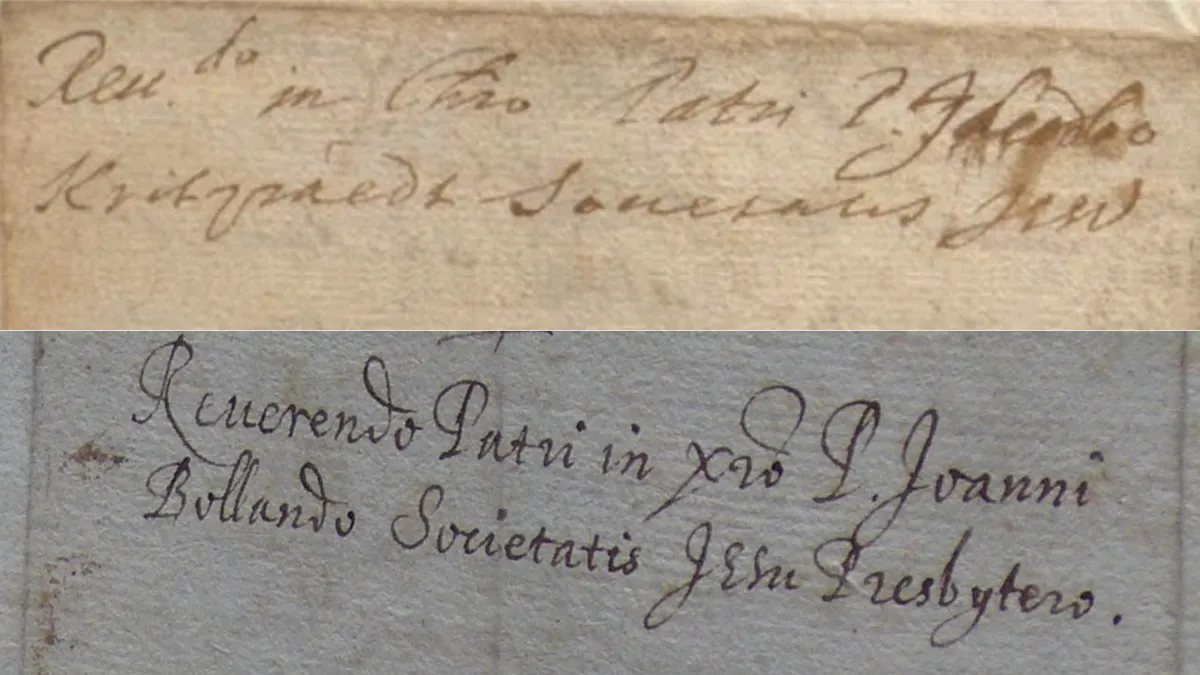 Reu.do in Chro Patri P. Jacobo
Kritzraedt Societatis Jesu
Reuerendo Patri in xro P. Joanni
Bollando Societatis Jesu Presbytero.